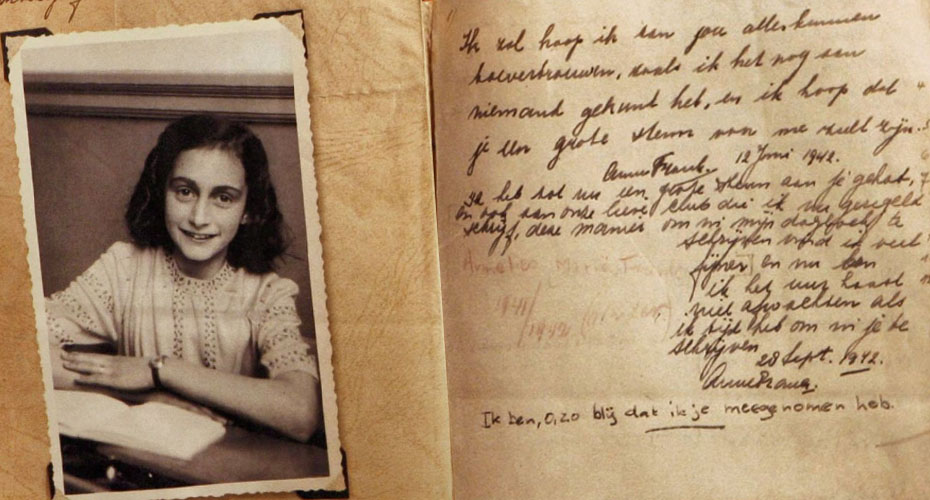 Ik zal hoop ik aan jou alles kunnen
toevertrouwen, zoals ik het nog aan
niemand gekunt heb, en ik hoop dat
je een grote steun voor me zult zijn.
Anne Frank. 12 Juni 1942.
Ik heb tot nu een grote steun aan je gehat,
en ook aan onze lieve club die ik nu geregelt
schrijf, deze manier om in mijn dagboek te
schrijven vind ik veel
fijner en nu kan
ik het uur haast
niet afwachten als
ik tijd heb om in je te
schrijven
28 Sept. 1942.
Anne Frank.
1941/
1942
Ik ben, O, zo blij dat ik je meegenomen heb.